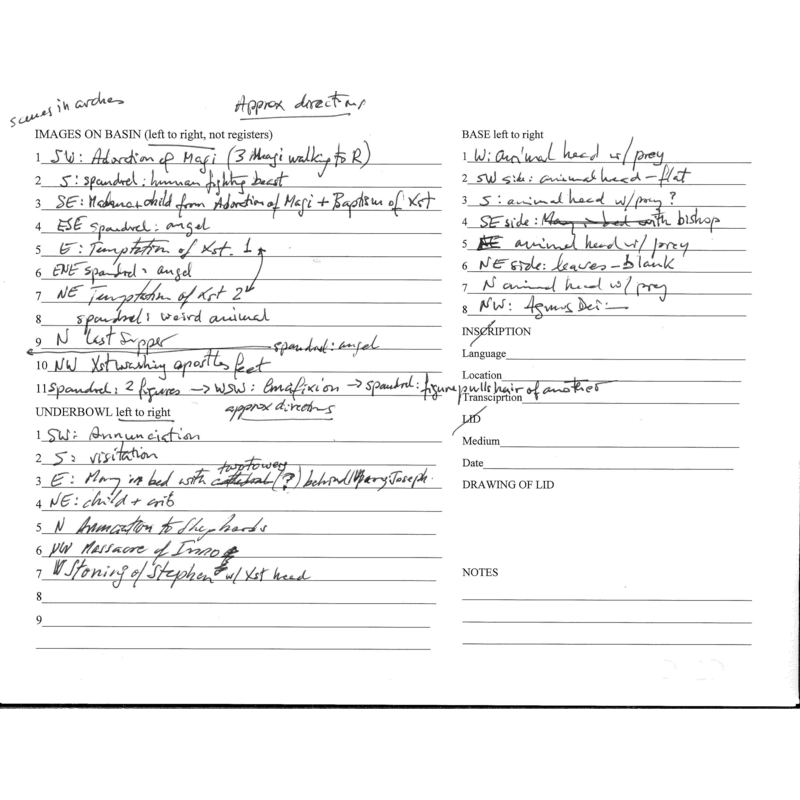 scenes in arches
Approx directions
IMAGES ON BASIN (left to right, not registers)
1 SW: Adoration of Magi (3 Magi walking to R)
2 S: spandrel: human fighting beast
3 SE: Madonna + child from Adoration of Magi + Baptism of Xst
4 ESE spandrel: angel
5 E: Temptation of Xst. 1
6 ENE spandrel: angel
7 NE Temptation of Xst 2
8 spandrel: weird animal
9 N Last Supper spandrel: angel
10 NW Xst washing apostles feet
11 spandrel: 2 figures → WSW: → spandrel: figure pulls hair of another
UNDERBOWL left to right approx directions
1 SW: Annunciation
2 S: visitation
3 E: Mary in bed with cathedral two towers (?) behind Mary, Joseph.
4 NE: child + crib
5 N Annunciation to Shepherds
6 NW Massacre of Inno
7 W Stoning of Stephen w/ Xst head
8
9
BASE left to right
1 W: animal head w/ prey
2 SW side: animal head - flat
3 S: animal head w/ prey?
4 SE side: Mary in bed with bishop
5 E animal head w/ prey
6 NE side: leaves - blank
7 N animal head w/ prey
8 NW: Agnus Dei
INSCRIPTION
Language
Location
Transciprtion
LID
Medium
Date
DRAWING OF LID
NOTES